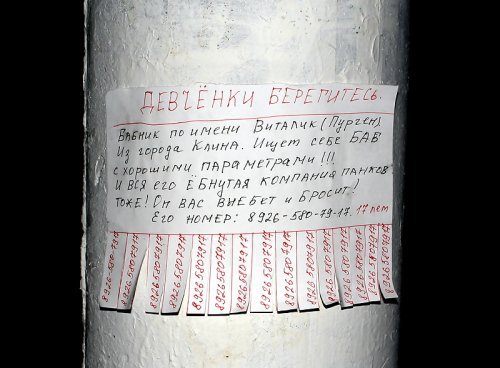 ДЕВЧЁНКИ БЕРЕГИТЕСЬ.
БАБНИК ПО ИМЕНИ ВИТАЛИК (ПУРГЕН)
ИЗ ГОРОДА КЛИНА. ИЩЕТ СЕБЕ БАБ
С ХОРОШИМИ ПАРАМЕТРАМИ !!!
И ВСЯ ЕГО ЁБНУТАЯ КОМПАНИЯ ПАНКОВ
ТОЖЕ! ОН ВАС ВЫЕБЕТ И БРОСИТ!
ЕГО НОМЕР: 8926-580-79-17. 17 лет
89265807917
89265807917
89265807917
89265807917
89265807917
89265807917
89265807917
89265807917
89265807917
89265807917
89265807917
89265807917
89265807917
89265807917